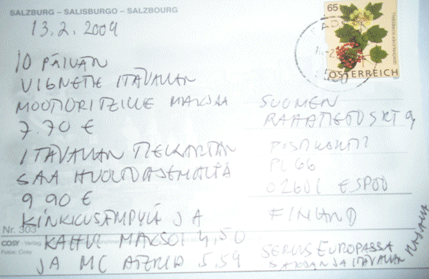 SALZBURG – SALISBURGO – SALZBOURG
13.2.2009
10 PÄIVÄN
VIGNETTE ITÄVALLAN
MOOTTORITEILLE MAKSAA
7.70 €
ITÄVALLAN TIEKARTAN
SAA HUOLTOASEMALTA
9.90 €
KINKKUSÄMPYLÄ JA
KAHVI MAKSOI 4,50
JA MC ATERIA 5.59
65
ÖSTERREICH
SUOMEN
PL 66
02601 ESPOO
FINLAND
SERVUS EUROPASSA
ITÄVALLAN
Nr. 303
cosy